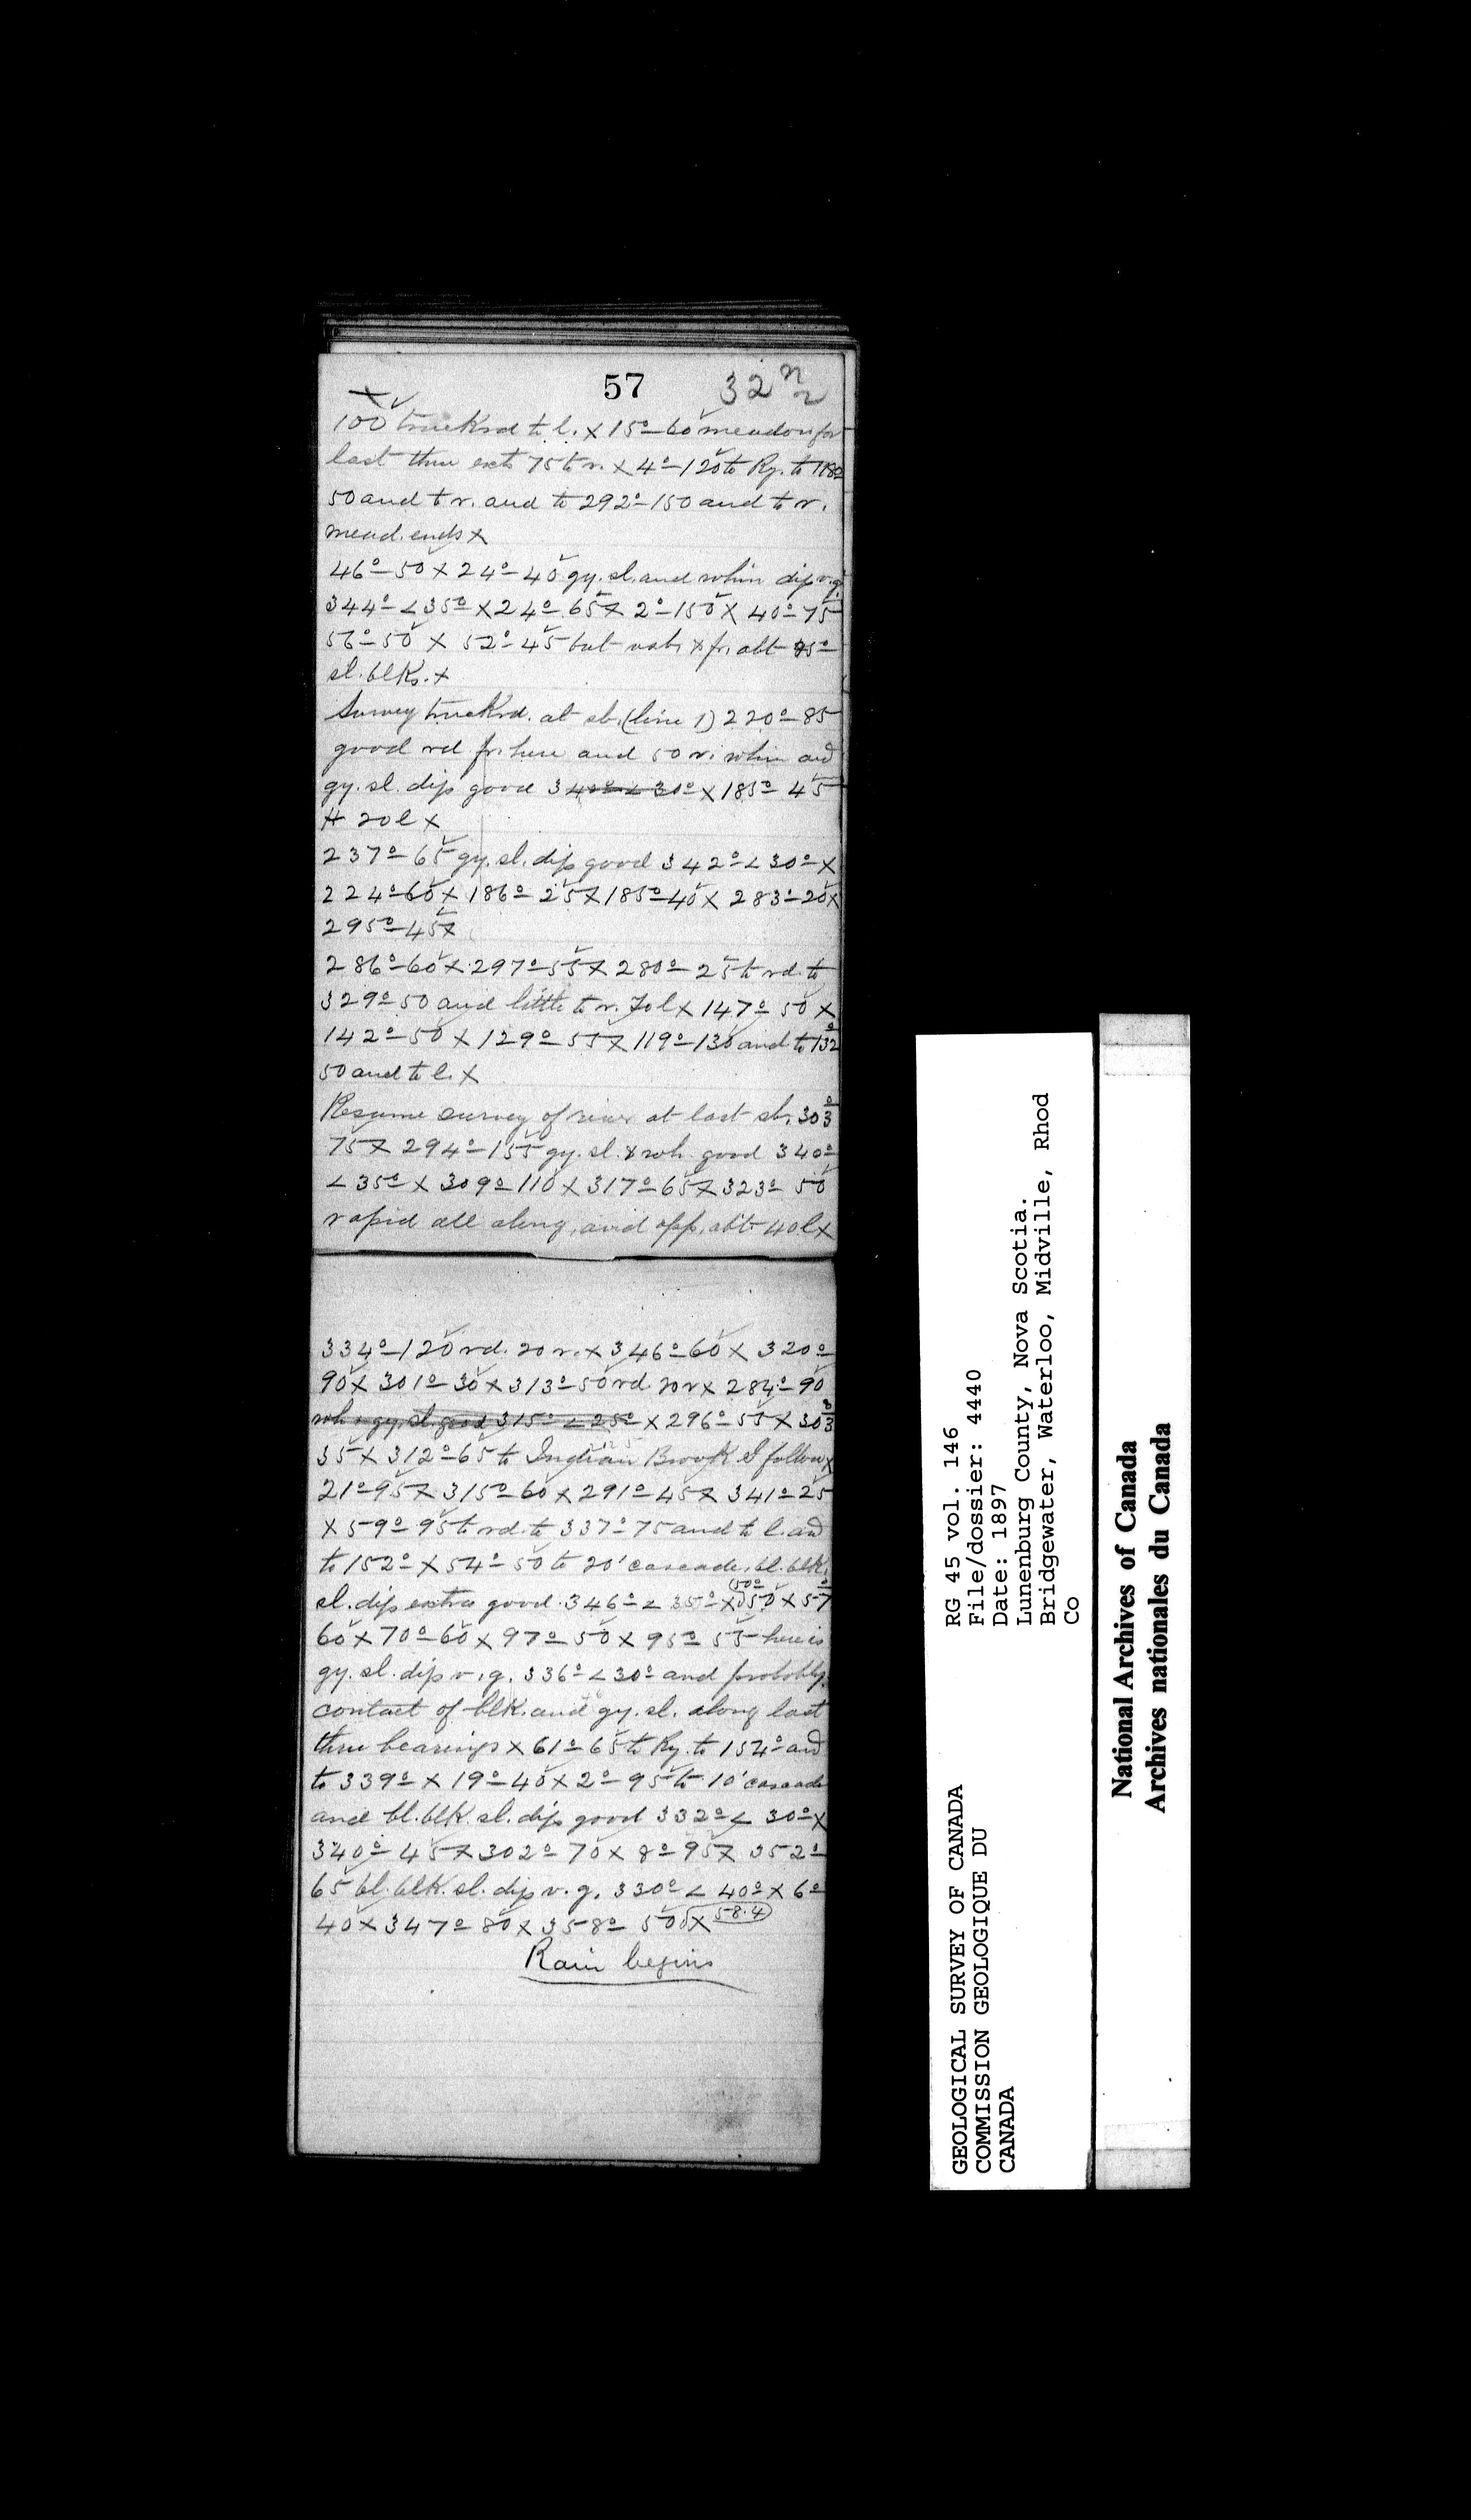 57
32
100 truckrd to l. x 15° 60 meadow for
last three ext. 75 to r. x 4° 120 to Ry. to 118°
50 and to r. and to 292° 150 and to r.
mead. ends x
46° 50 x 24° 40 gy. sl. and whin dip v.g.
344° < 35° x 24° 65 x 2° 150 x 40° 75
56° 50 x 52° 45 but x fr. abt 95°
sl. blks. x
Survey truckrd. at st. (line 1) 220° 85
good rd fr. here and 50 r. whin and
gy. sl. dip good 340° < 30° x 185° 45
H 20 l x
237° 65 gy. sl. dip good 342° < 30° x
224° 60 x 186° 25 x 185° 40 x 283° 20 x
295° 45 x
286° 60 x 297° 55 x 280° 25 to rd. to
329° 50 and little to r. l x 147° 50 x
142° 50 x 129° 55 x 119° 130 and to 132°
50 and to l. x
Resume survey of river at last st. 303°
75 x 294° 155 gy. sl. & wh. good 340°
< 35° x 309° 110 x 317° 65 x 323° 50
rapid all along, and opp. abt 40 l x
334° 120 rd. 20 r. x 346° 60 x 320°
90 x 301° 30 x 313° 50 rd. 20 r x 284° 90
wh & gy. sl. good 315° < 25° x 296° 55 x 303°
35 x 312° 65 to Indian Brook I follow x
21° 95 x 315° 60 x 291° 45 x 341° 25
x 59° 95 to rd. to 337° 75 and to l. and
to 152° x 54° 50 to 20' cascade, bl. blk.
sl. dip extra good 346° < 35° x 50° 50 x 57°
60 x 70° 60 x 97° 50 x 95° 55 here is
gy. sl. dip v.g. 336° < 30° and probably
contact of blk. and gy. sl. along last
three bearings x 61° 65 to Ry. to 154° and
to 339° x 19° 40 x 2° 95 to 10' cascade
and bl. blk. sl. dip good 332° < 30° x
340° 45 x 302° 70 x 8° 95 x 352°
65 bl. blk. sl. dip v.g. 330° < 40° x 6°
40 x 347° 80 x 358° 50 x 58.4
Rain begins
GEOLOGICAL SURVEY OF CANADA
COMMISSION GEOLOGIQUE DU
CANADA
RG 45 vol. 146
File/dossier: 4440
Date: 1897
Lunenburg County, Nova Scotia.
Bridgewater, Waterloo, Midville, Rhod
Co
National Archives of Canada
Archives nationales du Canada